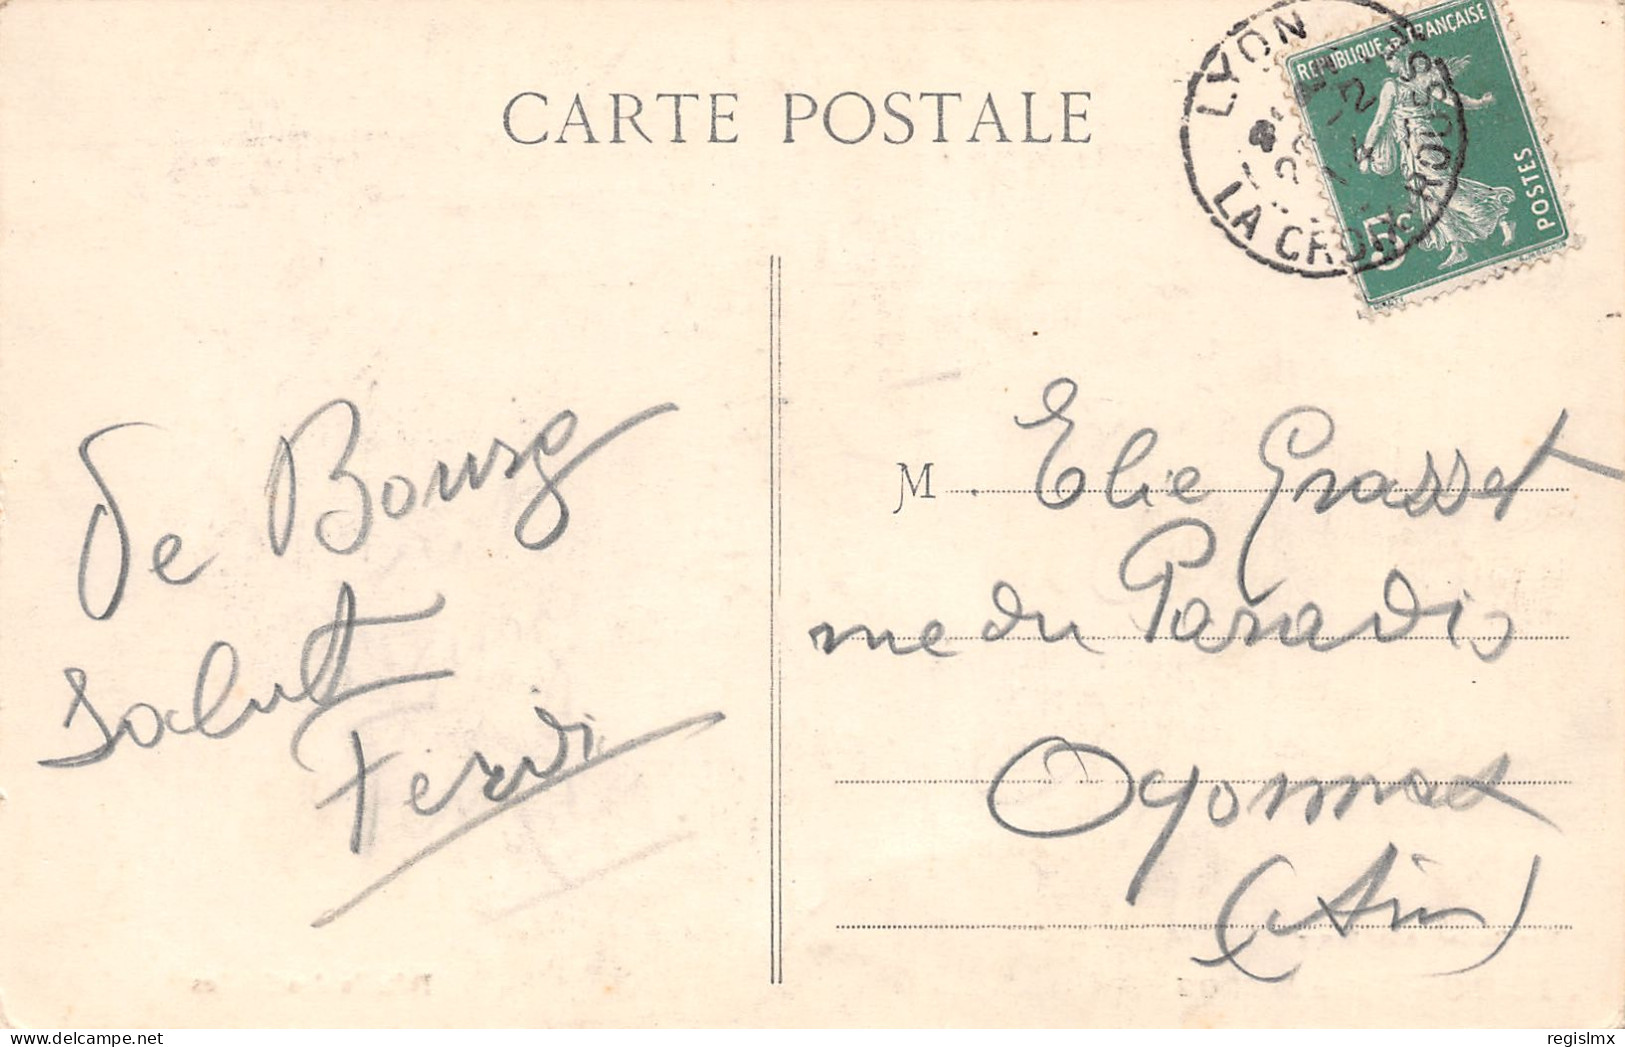 CARTE POSTALE
RÉPUBLIQUE FRANÇAISE
POSTES
5c
LYON
LA CROIX-ROUSSE
De Bourg
Salut
Ferdi
M. Elie Grasset
rue du Paradis
Oyonnax
(Ain)
regislmx